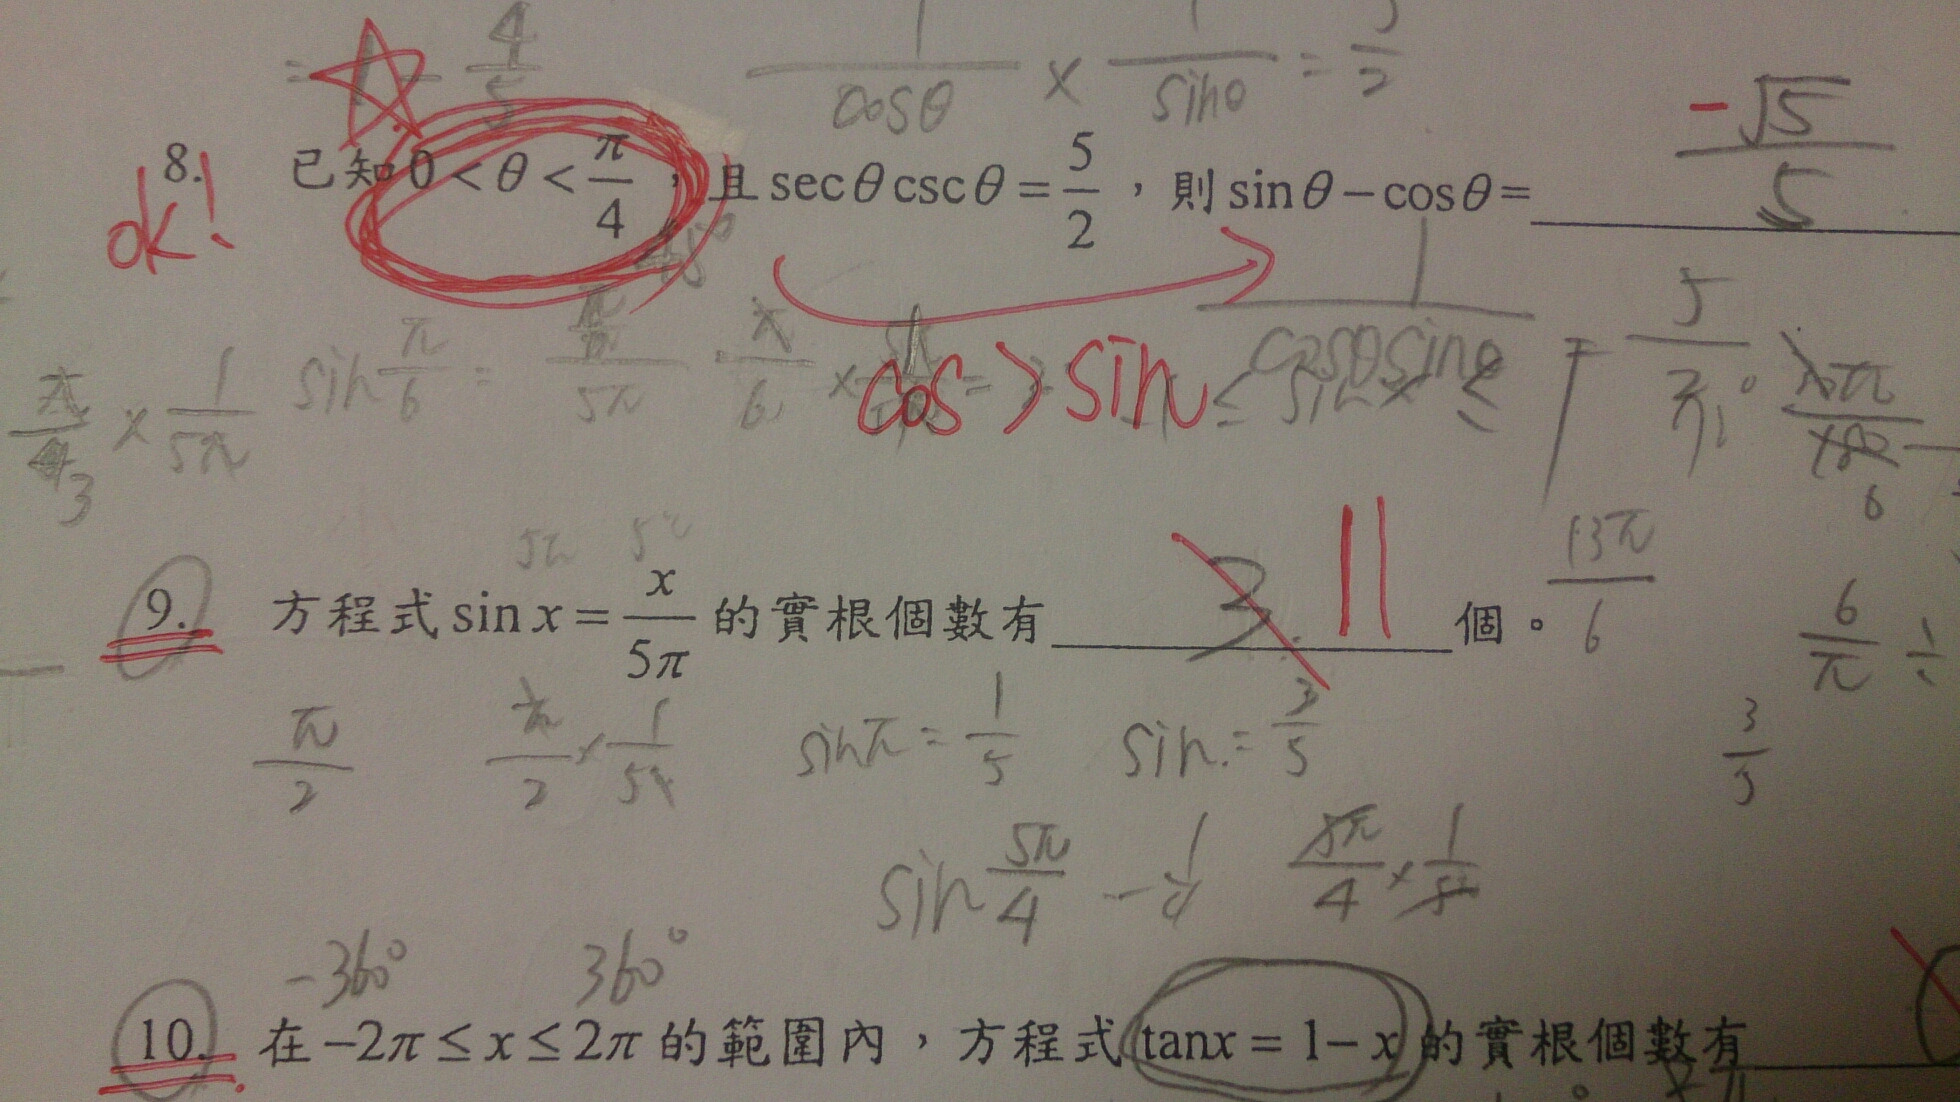 = 1 - 4/5
1/cosθ × 1/sinθ = 5/2
-√5/5
8. 已知 0 < θ < π/4，且 secθ cscθ = 5/2，則 sinθ − cosθ =
ok!
45°
1/cosθsinθ = 5/2
π/4 × 1/5π
3
sin π/6 =
cos > sin
≤ sin x ≤
5π
13π/6
9. 方程式 sin x = x/5π 的實根個數有 3 11 個。
6/π ÷
π/2
π/2 × 1/5π
sinπ = 1/5
sin = 3/5
3/5
sin 5π/4
5π/4 × 1/5π
-360° 360°
10. 在 −2π ≤ x ≤ 2π 的範圍內，方程式 tanx = 1− x 的實根個數有